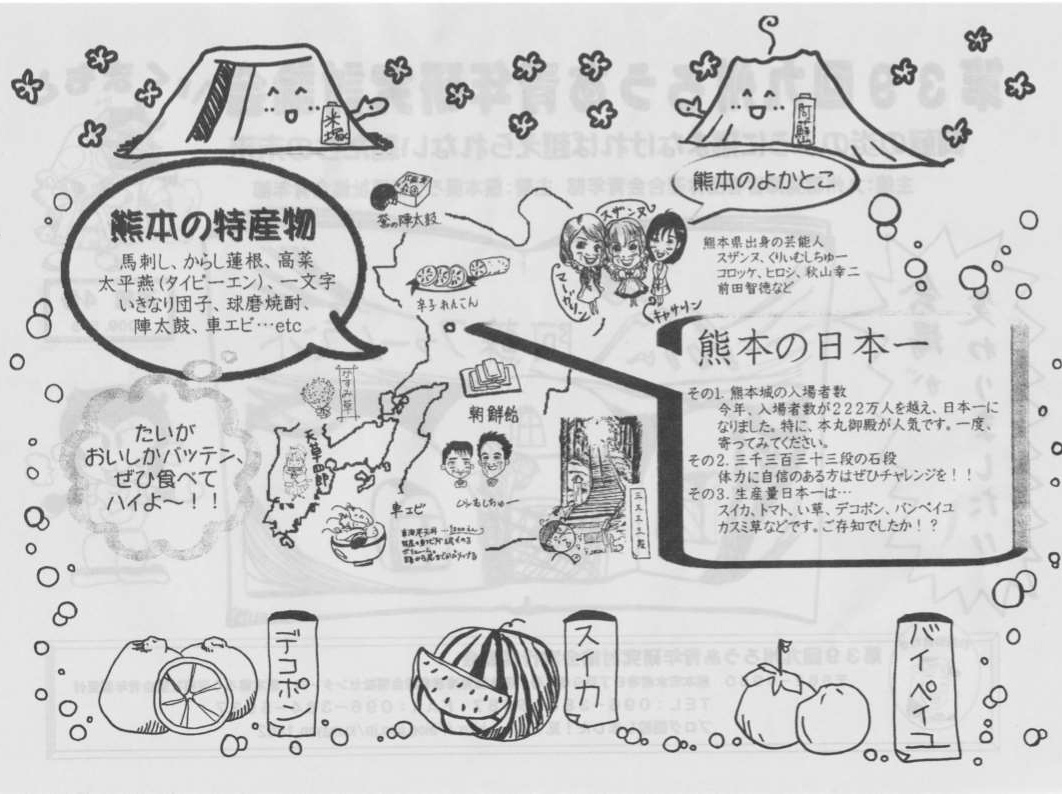 米塚
阿蘇
熊本の特産物
馬刺し、からし蓮根、高菜
太平燕(タイピーエン)、一文字
いきなり団子、球磨焼酎、
陣太鼓、車エビ…etc
たいが
おいしかバッテン、
ぜひ食べて
ハイよ~!!
誉の陣太鼓
辛子れんこん
朝鮮飴
かすみ草
天草四郎
車エビ
スザンヌ
マーガリン
キャサリン
三三三三段
熊本のよかとこ
熊本県出身の芸能人
スザンヌ、くりぃむしちゅー
コロッケ、ヒロシ、秋山幸二
前田智徳など
熊本の日本一
その1. 熊本城の入場者数
今年、入場者数が222万人を越え、日本一に
なりました。特に、本丸御殿が人気です。一度、
寄ってみてください。
その2. 三千三百三十三段の石段
体力に自信のある方はぜひチャレンジを!!
その3. 生産量日本一は…
スイカ、トマト、い草、デコポン、バンペイユ
カスミ草などです。ご存知でしたか!?
デコポン
スイカ
バイペイユ